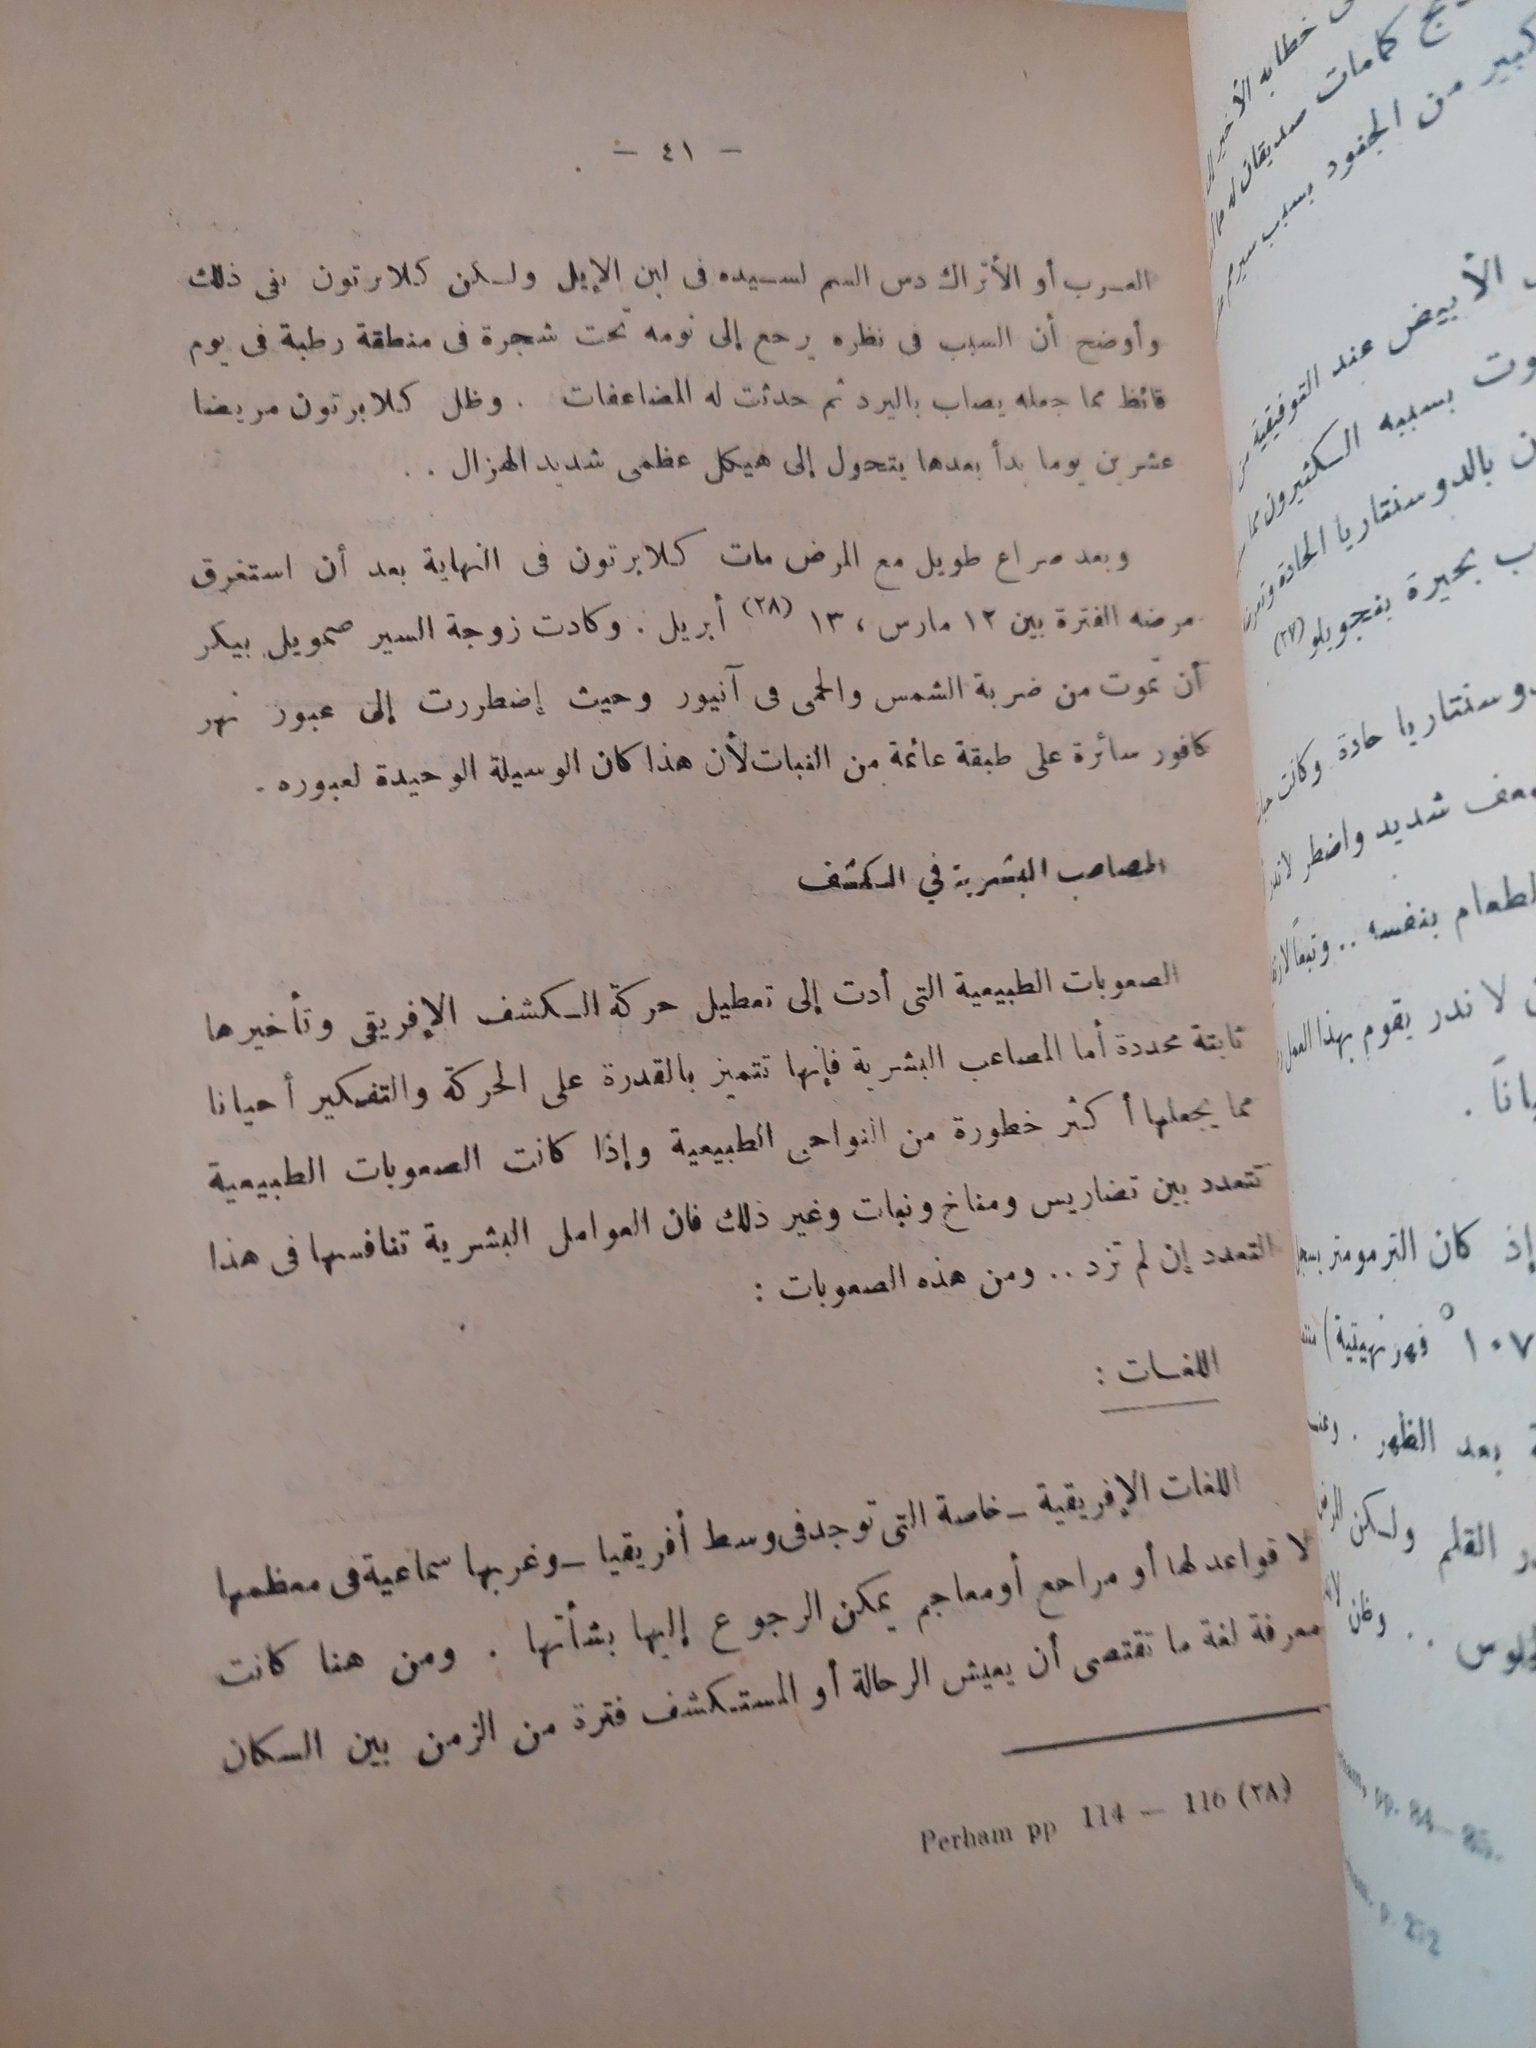 — ٤١ —
العرب أو الأتراك دس السم لسيده فى لبن الإبل ولكن كلابرتون نفى ذلك
وأوضح أن السبب فى نظره يرجع إلى نومه تحت شجرة فى منطقة رطبة فى يوم
قائظ مما جعله يصاب بالبرد ثم حدثت له المضاعفات . وظل كلابرتون مريضا
عشرين يوما بدأ بعدها يتحول إلى هيكل عظمى شديد الهزال . .
وبعد صراع طويل مع المرض مات كلابرتون فى النهاية بعد أن استغرق
مرضه الفترة بين ١٢ مارس ، ١٣ (٢٨) أبريل . وكادت زوجة السير صمويل بيكر
أن تموت من ضربة الشمس والحمى فى آنيور وحيث إضطررت إلى عبور نهر
كافور سائرة على طبقة عائمة من النبات لأن هذا كان الوسيلة الوحيدة لعبوره .
المصاعب البشرية في الكشف
الصعوبات الطبيعية التى أدت إلى تعطيل حركة الكشف الإفريقى وتأخيرها
ثابتة محددة أما المصاعب البشرية فإنها تتميز بالقدرة على الحركة والتفكير أحيانا
مما يجعلها أكثر خطورة من النواحى الطبيعية وإذا كانت الصعوبات الطبيعية
تتعدد بين تضاريس ومناخ ونبات وغير ذلك فان العوامل البشرية تنافسها فى هذا
التعدد إن لم تزد . . ومن هذه الصعوبات :
اللغات :
اللغات الإفريقية – خاصة التى توجد فى وسط أفريقيا – وغربها سماعية فى معظمها
لا قواعد لها أو مراجع أو معاجم يمكن الرجوع إليها بشأنها . ومن هنا كانت
معرفة لغة ما تقتضى أن يعيش الرحالة أو المستكشف فترة من الزمن بين السكان
Perham pp 114 — 116 (٢٨)
خطابه الأخير
كلمات صديقان له
كبير من الجنود بسبب
الأبيض عند التوفيقية
بسببه الكثيرون مما
بالدوسنتاريا الحادة
بحيرة بنجويلو (٢٧)
دوسنتاريا حادة وكانت
شديد واضطر
الطعام بنفسه . . وتبعاً
لاندر يقوم بهذا العمل
إذ كان الترمومتر يسجل
١٠٧ ° فهرنهيتية)
بعد الظهر .
القلم ولكن
pp. 84— 85.
p. 272